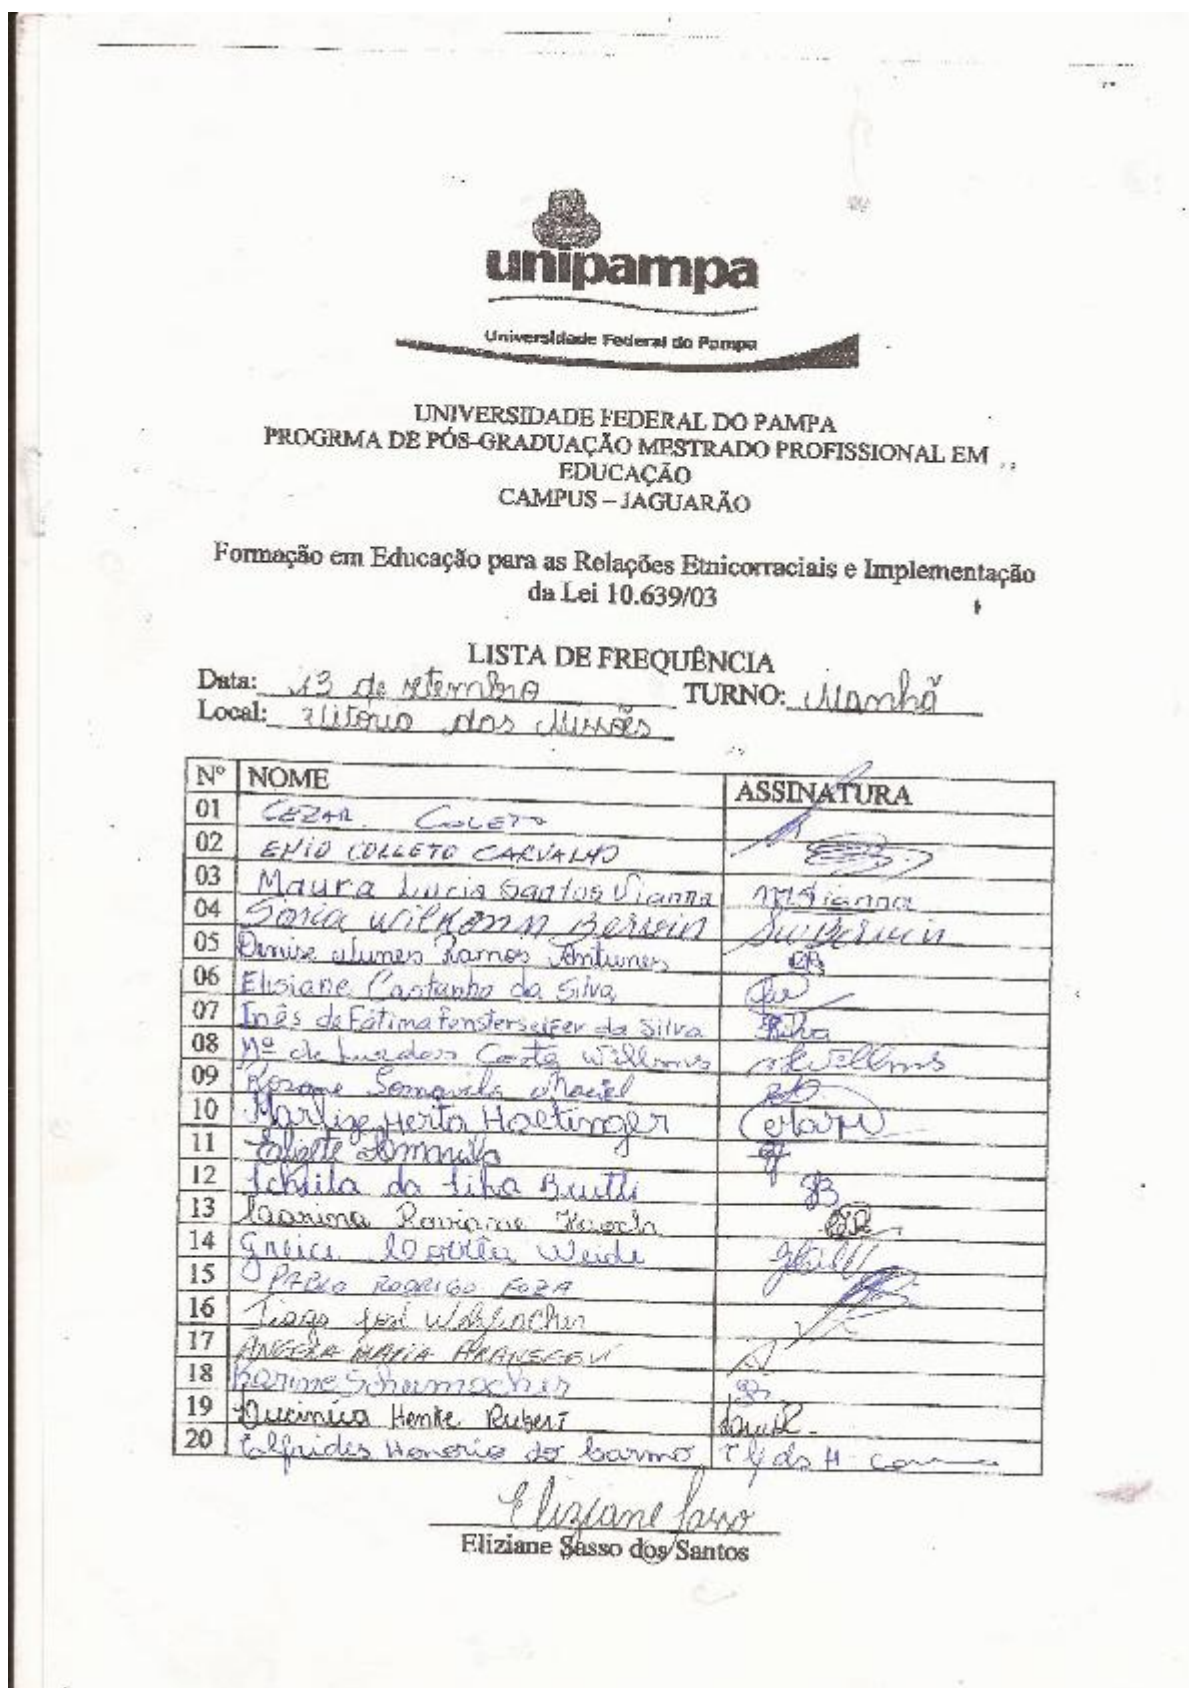 unipampa
Universidade Federal do Pampa
UNIVERSIDADE FEDERAL DO PAMPA
PROGRMA DE PÓS-GRADUAÇÃO MESTRADO PROFISSIONAL EM
EDUCAÇÃO
CAMPUS – JAGUARÃO
Formação em Educação para as Relações Etnicorraciais e Implementação
da Lei 10.639/03
LISTA DE FREQUÊNCIA
Data: 13 de setembro TURNO: Manhã
Local: Vitória das Missões
Nº NOME ASSINATURA
01 CEZAR COLETO
02 ENIO COLLETO CARVALHO
03 Maura Lucia Santos Vianna
04 Sonia Wilkomn Berwein
05 Denise Nunes Ramos Antunes
06 Elisiane Castanho da Silva
07 Inês de Fátima Fensterseifer da Silva Silva
08 Mª de Lurdes Costa Willms Willms
09 Rozane Somavila Maciel
10 Marlize Herta Hoetinger
11 Eliette
12 da Silva
13 Raviane
14 Greice Corrêa Weide
15 PABLO RODRIGO
16 Tiago José
17 MARIA
18 Karine Schumacher
19 Henke Rubert
20 Honorio do Carmo
Eliziane Sasso
Eliziane Sasso dos Santos